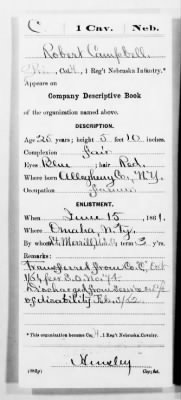 C 1 Cav. Neb.
Robert Campbell
, Co. , 1 Reg't Nebraska Infantry.*
Appears on
Company Descriptive Book
of the organization named above.
DESCRIPTION.
Age 26 years; height 5 feet 10 inches.
Complexion Fair
Eyes Blue; hair Red.
Where born Alleghany Co., N.Y.
Occupation Farmer
ENLISTMENT.
When June 15, 1861.
Where Omaha, N. Ty.
By whom Lt. Merrill, U.S.A; term 3 y'rs.
Remarks:
Transferred from Co. "C" Oct
1/61 for S.O. No. 75.
Discharged from service on
of disability Feb. 3/62.
*This organization became Co. , 1 Reg't Nebraska Cavalry.
Hinsley
Copyist.